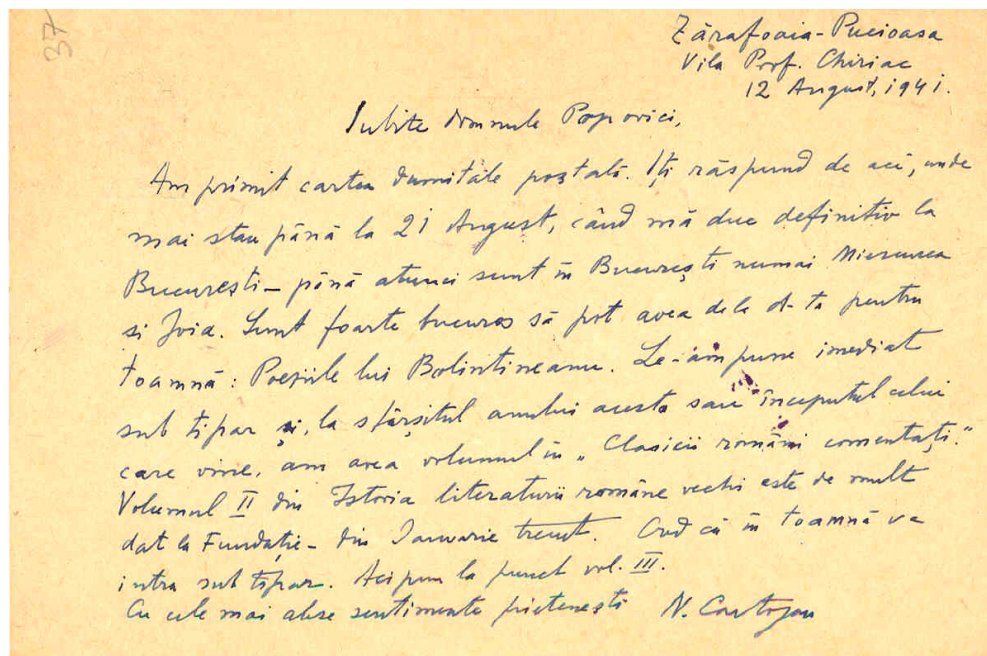 37
Zărafoaia-Pucioasa
Vila Prof. Chiriac
12 August, 1941.
Iubite domnule Popovici,
Am primit cartea dumitale poștală. Iți răspund de aci, unde
mai stau până la 21 August, când mă duc definitiv la
București – până atunci sunt in București numai Miercurea
si Joia. Sunt foarte bucuros să pot avea dela d-ta pentru
toamnă: Poeziile lui Bolintineanu. Le-am pune imediat
sub tipar și, la sfârșitul anului acesta sau începutul celui
care vine, am avea volumul in „Clasicii români comentați."
Volumul II din Istoria literaturii române vechi este de mult
dat la Fundație – din Ianuarie trecut. Cred că in toamnă va
intra sub tipar. Aci pun la punct vol. III.
Cu cele mai alese sentimente prietenești N. Cartojan